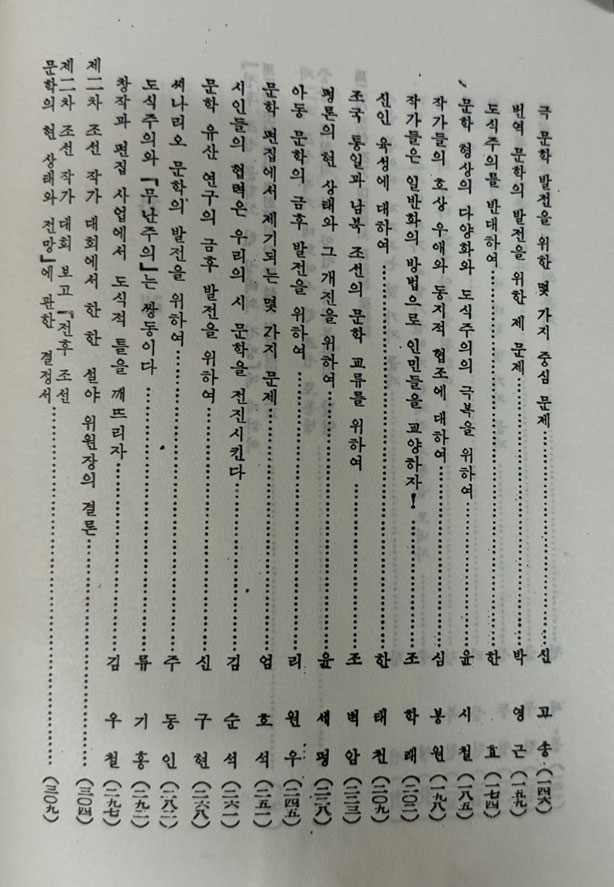 극 문학 발전을 위한 몇 가지 중심 문제……신 고 송 (一四六)
번역 문학의 발전을 위한 제 문제……박 영 근 (一五九)
도식주의를 반대하여……한 효 (一七四)
문학 형상의 다양화와 도식주의의 극복을 위하여……윤 시 철 (一八五)
작가들의 호상 우애와 동지적 협조에 대하여……심 봉 원 (一九八)
작가들은 일반화의 방법으로 인민들을 교양하자!……조 학 래 (二〇二)
신인 육성에 대하여……한 태 천 (二〇九)
조국 통일과 남북 조선의 문학 교류를 위하여……조 벽 암 (二二三)
평론의 현 상태와 그 개진을 위하여……윤 세 평 (二二八)
아동 문학의 금후 발전을 위하여……리 원 우 (二四五)
문학 편집에서 제기되는 몇 가지 문제……엄 호 석 (二五一)
시인들의 협력은 우리의 시 문학을 전진시킨다……김 순 석 (二六一)
문학 유산 연구의 금후 발전을 위하여……신 구 현 (二六八)
씨나리오 문학의 발전을 위하여……주 동 인 (二八二)
도식주의와 『무난주의』는 쌍동이다……류 기 홍 (二九二)
창작과 편집 사업에서 도식적 틀을 깨뜨리자……김 우 철 (二九七)
제二차 조선 작가 대회에서 한 한 설야 위원장의 결론……(三〇四)
제二차 조선 작가 대회 보고 『전후 조선
문학의 현 상태와 전망』에 관한 결정서……(三〇九)